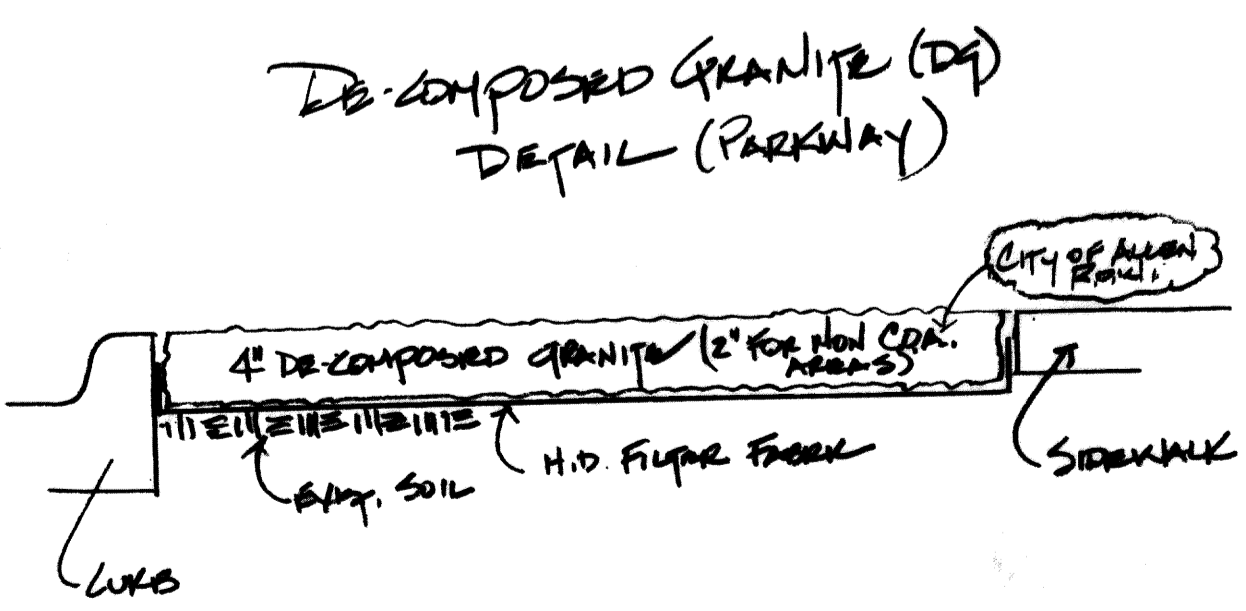 DE-COMPOSED GRANITE (DG)
DETAIL (PARKWAY)
CITY OF ALLEN
R.O.W.
4" DE-COMPOSED GRANITE (2" FOR NON C.O.A.
AREAS)
H.D. FILTER FABRIC
SIDEWALK
EXIST. SOIL
CURB